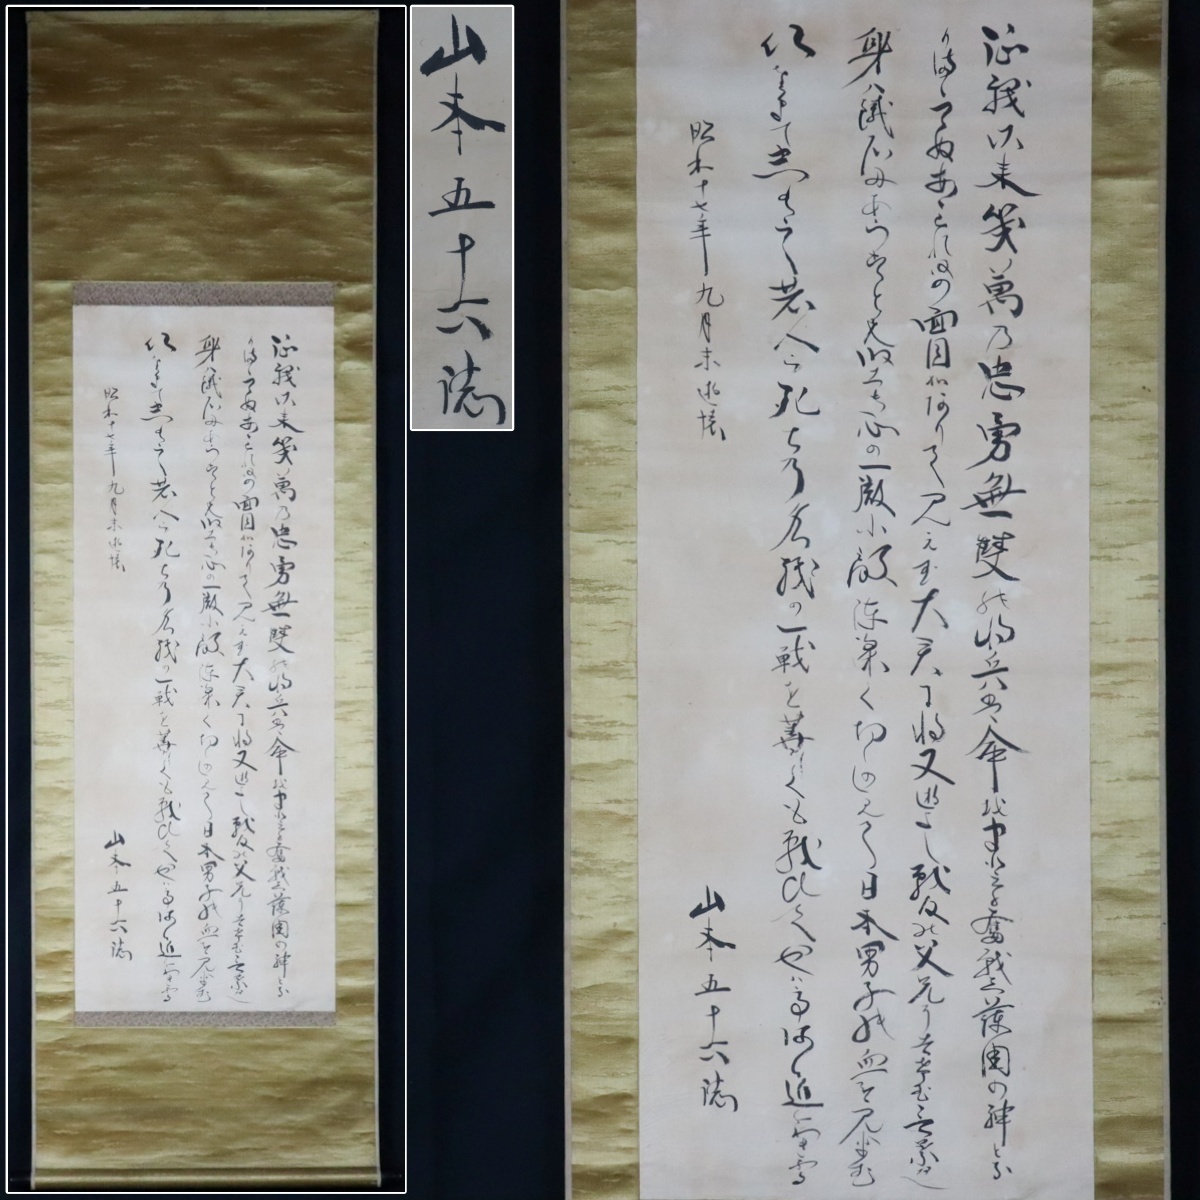 山本五十六誌
征戦以来幾萬の忠勇無雙の将兵は命をまとに奮戦し護国の神とな
りましぬあゝわれ何の面目かありて見えむ大君に将又逝きし戦友の父兄に告げむ言葉なし
身は鐵石にあらずとも堅き心の一徹に敵陣深く切り込みて日本男子の血を見せむ
いざまてしばし若人ら死出の名残の一戦を華々しくも戦ひてやがて
昭和十七年九月末述懐
山本五十六誌